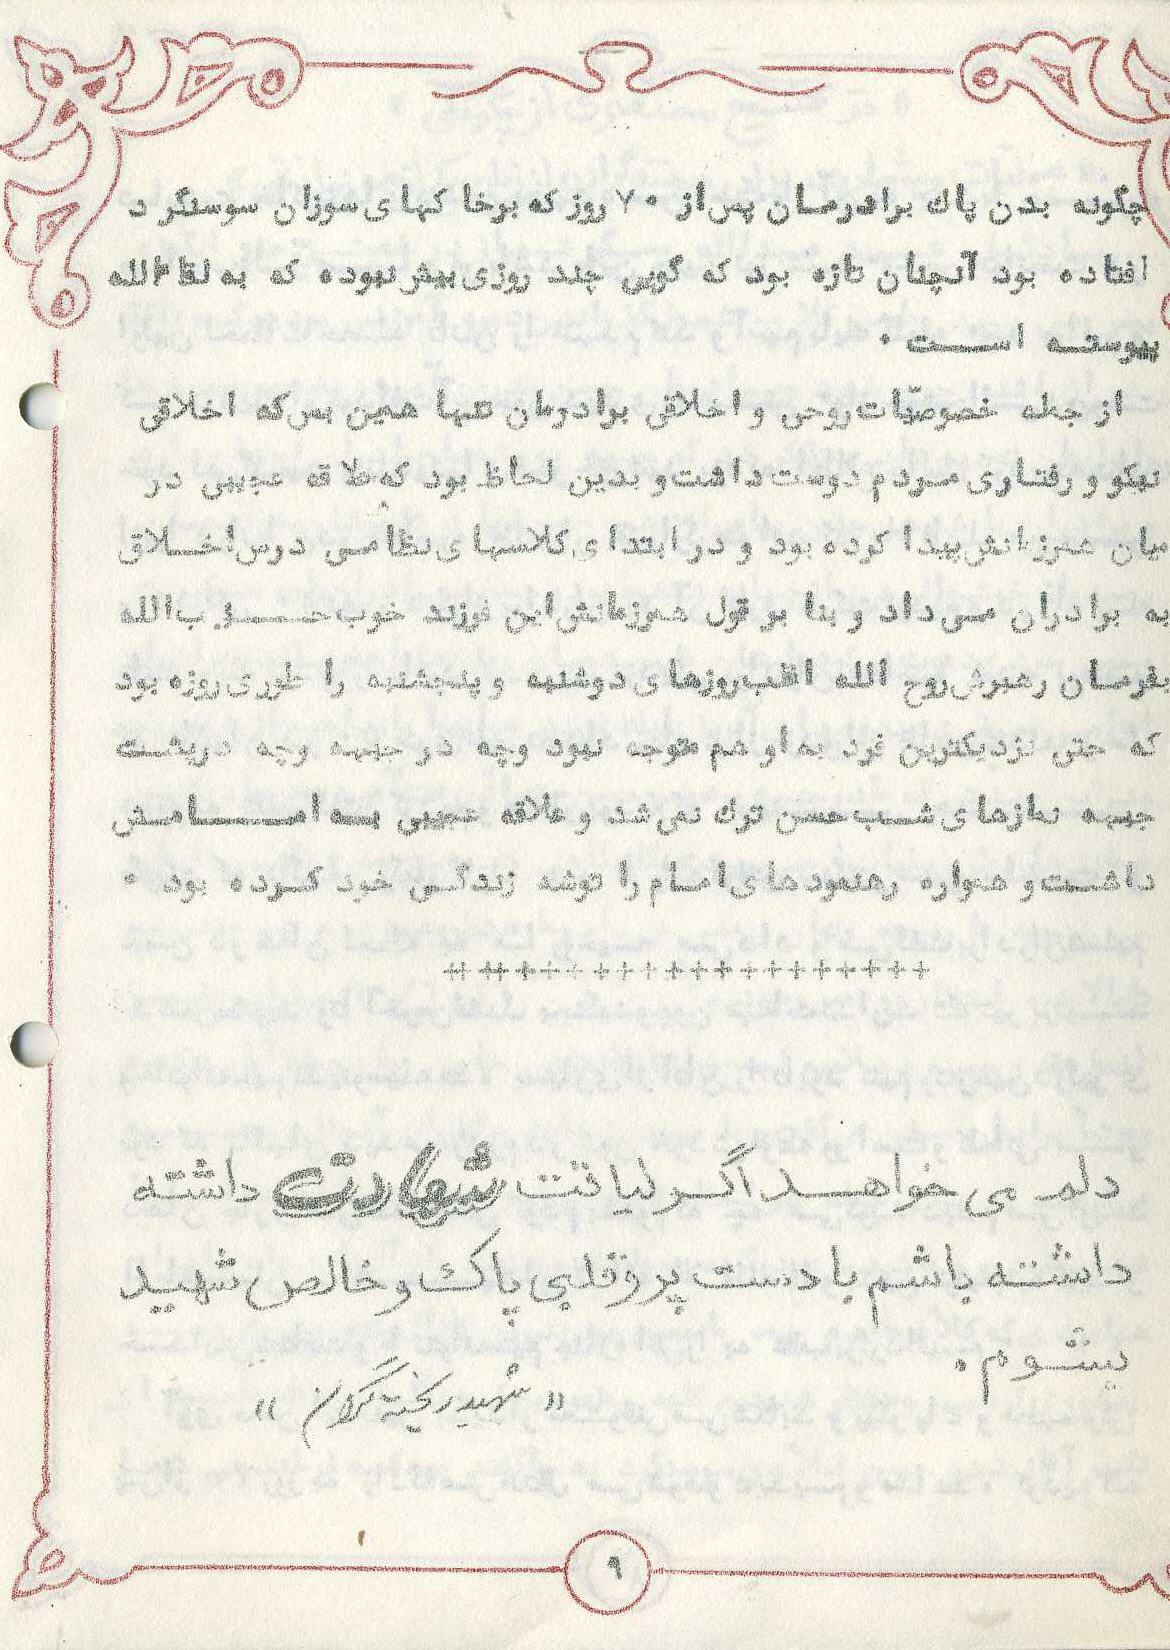 چگونه بدن پاك برادرمـان پس از ۷۰ روز كه برخاكهای سوزان سوسنگرد
افتاده بود آنچنان تازه بود كه گویی چند روزی بیش نبوده كه به لقاءالله
پیوسته اسـت ۰
از جمله خصوصیّات روحی و اخلاقی برادرمان تنها همین بس كه اخلاقی
نیكو و رفتاری مردم دوست داشت و بدین لحاظ بود كه علاقه عجیبی در
میان همرزمانش پیدا كرده بود و در ابتدای كلاسهای نظامی درس اخـلاق
به برادران می داد و بنا بر قول همرزمانش این فرزند خوب حـــزب الله
بفرمـان رهبرش روح الله اغلب روزهای دوشنبه و پنجشنبه را طوری روزه بود
كه حتی نزدیكترین فرد به او هم متوجه نبود وچه در جبهه وچه درپشت
جبهه نمازهای شـب حسن ترك نمی شد و علاقه عجیبی بـه امـــامـش
داشـت و همواره رهنمودهای امـام را توشه زندگـی خود كـرده بود ۰
+++++++++++++++++++
دلم می خواهـد اگـر لیاقت شهادت داشته
داشته باشم با دست پر و قلبی پاك و خالص شهید
بشوم ۰
« شهید ریخته گران »
۹